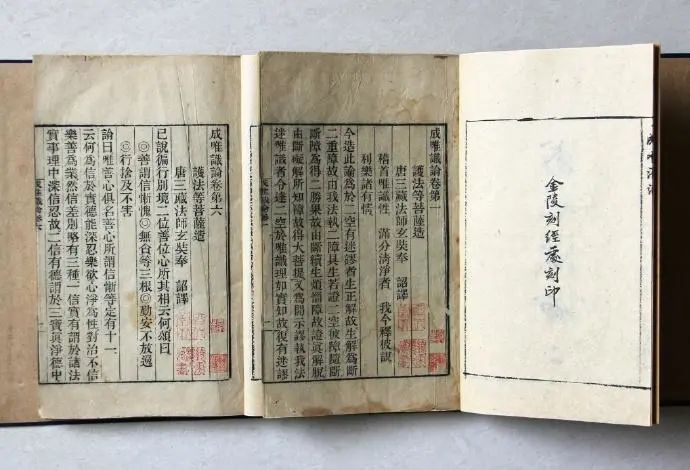 金陵刻經處刻印
成唯識論卷第一
護法等菩薩造
唐三藏法師玄奘奉 詔譯
稽首唯識性 滿分清淨者 我今釋彼說
利樂諸有情
今造此論為於二空有迷謬者生正解故生解為斷
二重障故由我法執二障具生若證二空彼障隨斷
斷障為得二勝果故由斷續生煩惱障故證眞解脫
由斷礙解所知障故得大菩提又為開示謬執我法
迷唯識者令達二空於唯識理如實知故復有迷謬
成唯識論卷第六
護法等菩薩造
唐三藏法師玄奘奉 詔譯
已說徧行別境二位善位心所其相云何頌曰
◎善謂信慚愧◎無貪等三根◎勤安不放逸
◎行捨及不害
論曰唯善心俱名善心所謂信慚等定有十一
云何為信於實德能深忍樂欲心淨為性對治不信
樂善為業然信差別略有三種一信實有謂於諸法
實事理中深信忍故二信有德謂於三寶眞淨德中
成唯識論卷六